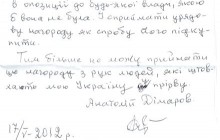 в опозиції до будь-якої влади, якою
б вона не була. І сприймати урядо-
ву нагороду як спробу його підку-
пити.
Тим більше не можу прийняти
цю нагороду з рук людей, які штов-
хають мою Україну у прірву
Анатолій Дімаров
17/V-2012 р.